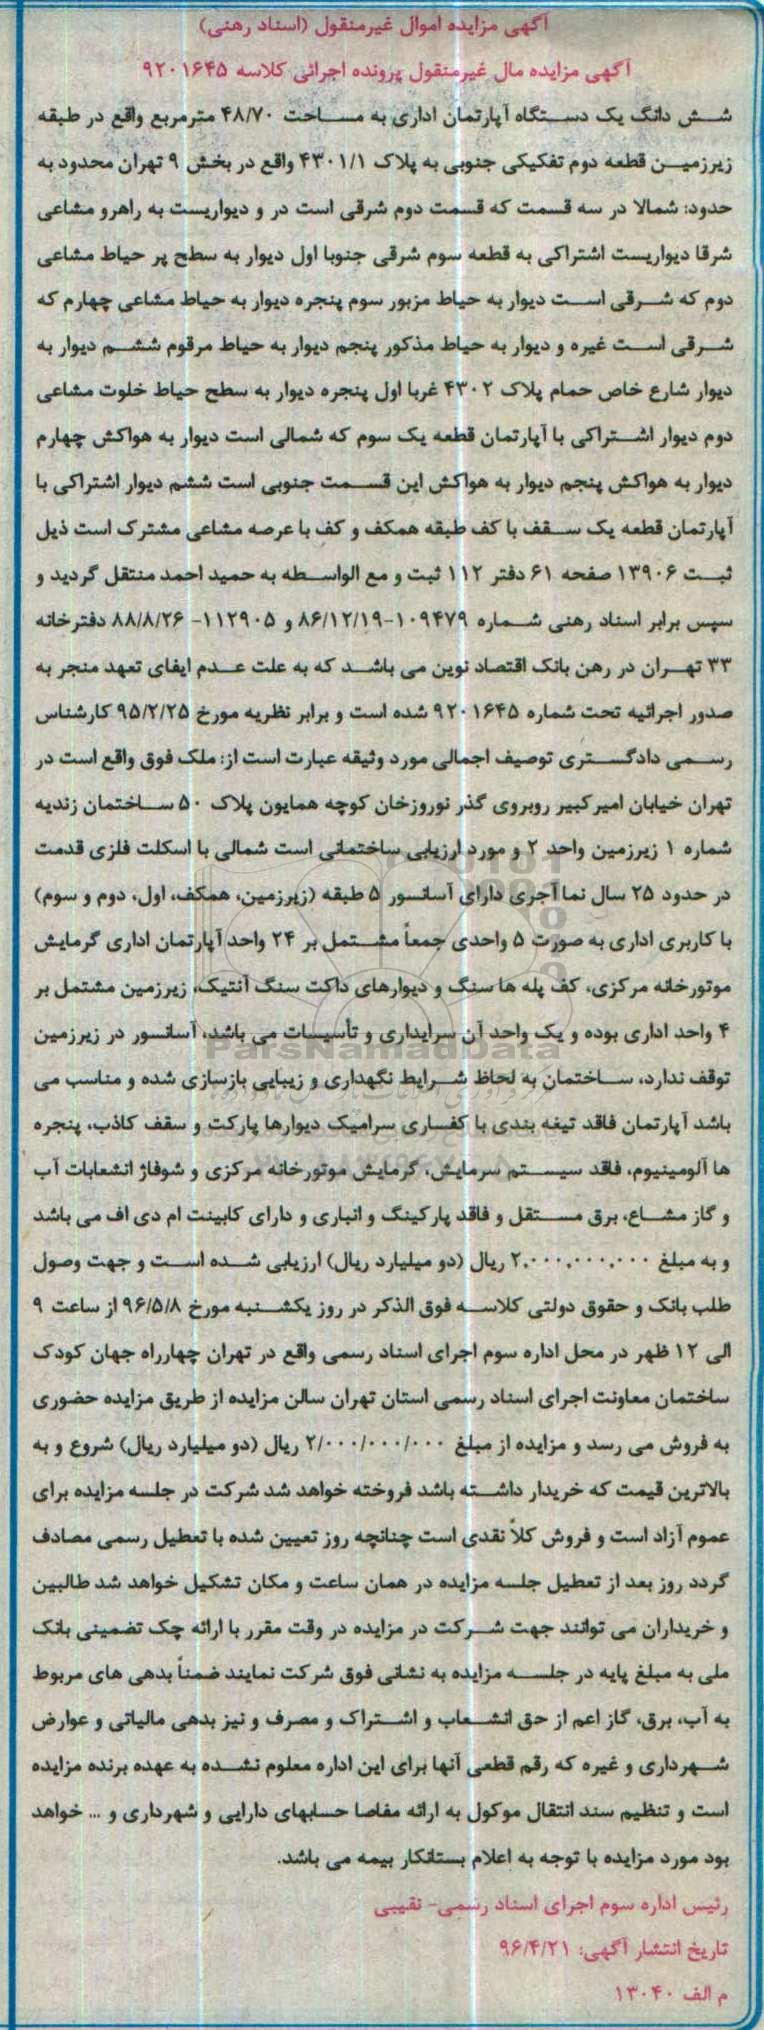 آگهی مزایده اموال غیرمنقول (اسناد رهنی)
آگهی مزایده مال غیرمنقول پرونده اجرائی کلاسه ۹۲۰۱۶۴۵
شش دانگ یک دستگاه آپارتمان اداری به مساحت ۴۸/۷۰ مترمربع واقع در طبقه
زیرزمین قطعه دوم تفکیکی جنوبی به پلاک ۴۳۰۱/۱ واقع در بخش ۹ تهران محدود به
حدود: شمالا در سه قسمت که قسمت دوم شرقی است در و دیواریست به راهرو مشاعی
شرقا دیواریست اشتراکی به قطعه سوم شرقی جنوبا اول دیوار به سطح پر حیاط مشاعی
دوم که شرقی است دیوار به حیاط مزبور سوم پنجره دیوار به حیاط مشاعی چهارم که
شرقی است غیره و دیوار به حیاط مذکور پنجم دیوار به حیاط مرقوم ششم دیوار به
دیوار شارع خاص حمام پلاک ۴۳۰۲ غربا اول پنجره دیوار به سطح حیاط خلوت مشاعی
دوم دیوار اشتراکی با آپارتمان قطعه یک سوم که شمالی است دیوار به هواکش چهارم
دیوار به هواکش پنجم دیوار به هواکش این قسمت جنوبی است ششم دیوار اشتراکی با
آپارتمان قطعه یک سقف با کف طبقه همکف و کف با عرصه مشاعی مشترک است ذیل
ثبت ۱۳۹۰۶ صفحه ۶۱ دفتر ۱۱۲ ثبت و مع الواسطه به حمید احمد منتقل گردید و
سپس برابر اسناد رهنی شماره ۱۰۹۴۷۹-۸۶/۱۲/۱۹ و ۱۱۲۹۰۵- ۸۸/۸/۲۶ دفترخانه
۳۳ تهران در رهن بانک اقتصاد نوین می باشد که به علت عدم ایفای تعهد منجر به
صدور اجرائیه تحت شماره ۹۲۰۱۶۴۵ شده است و برابر نظریه مورخ ۹۵/۲/۲۵ کارشناس
رسمی دادگستری توصیف اجمالی مورد وثیقه عبارت است از: ملک فوق واقع است در
تهران خیابان امیرکبیر روبروی گذر نوروزخان کوچه همایون پلاک ۵۰ ساختمان زندیه
شماره ۱ زیرزمین واحد ۲ و مورد ارزیابی ساختمانی است شمالی با اسکلت فلزی قدمت
در حدود ۲۵ سال نما آجری دارای آسانسور ۵ طبقه (زیرزمین، همکف، اول، دوم و سوم)
با کاربری اداری به صورت ۵ واحدی جمعاً مشتمل بر ۲۴ واحد آپارتمان اداری گرمایش
موتورخانه مرکزی، کف پله ها سنگ و دیوارهای داکت سنگ آنتیک، زیرزمین مشتمل بر
۴ واحد اداری بوده و یک واحد آن سرایداری و تأسیسات می باشد، آسانسور در زیرزمین
توقف ندارد، ساختمان به لحاظ شرایط نگهداری و زیبایی بازسازی شده و مناسب می
باشد آپارتمان فاقد تیغه بندی با کفساری سرامیک دیوارها پارکت و سقف کاذب، پنجره
ها آلومینیوم، فاقد سیستم سرمایش، گرمایش موتورخانه مرکزی و شوفاژ انشعابات آب
و گاز مشاع، برق مستقل و فاقد پارکینگ و انباری و دارای کابینت ام دی اف می باشد
و به مبلغ ۲,۰۰۰,۰۰۰,۰۰۰ ریال (دو میلیارد ریال) ارزیابی شده است و جهت وصول
طلب بانک و حقوق دولتی کلاسه فوق الذکر در روز یکشنبه مورخ ۹۶/۵/۸ از ساعت ۹
الی ۱۲ ظهر در محل اداره سوم اجرای اسناد رسمی واقع در تهران چهارراه جهان کودک
ساختمان معاونت اجرای اسناد رسمی استان تهران سالن مزایده از طریق مزایده حضوری
به فروش می رسد و مزایده از مبلغ ۲/۰۰۰/۰۰۰/۰۰۰ ریال (دو میلیارد ریال) شروع و به
بالاترین قیمت که خریدار داشته باشد فروخته خواهد شد شرکت در جلسه مزایده برای
عموم آزاد است و فروش کلاً نقدی است چنانچه روز تعیین شده با تعطیل رسمی مصادف
گردد روز بعد از تعطیل جلسه مزایده در همان ساعت و مکان تشکیل خواهد شد طالبین
و خریداران می توانند جهت شرکت در مزایده در وقت مقرر با ارائه چک تضمینی بانک
ملی به مبلغ پایه در جلسه مزایده به نشانی فوق شرکت نمایند ضمناً بدهی های مربوط
به آب، برق، گاز اعم از حق انشعاب و اشتراک و مصرف و نیز بدهی مالیاتی و عوارض
شهرداری و غیره که رقم قطعی آنها برای این اداره معلوم نشده به عهده برنده مزایده
است و تنظیم سند انتقال موکول به ارائه مفاصا حسابهای دارایی و شهرداری و ... خواهد
بود مورد مزایده با توجه به اعلام بستانکار بیمه می باشد.
رئیس اداره سوم اجرای اسناد رسمی- نقیبی
تاریخ انتشار آگهی: ۹۶/۴/۲۱
م الف ۱۳۰۴۰
ParsNamadData